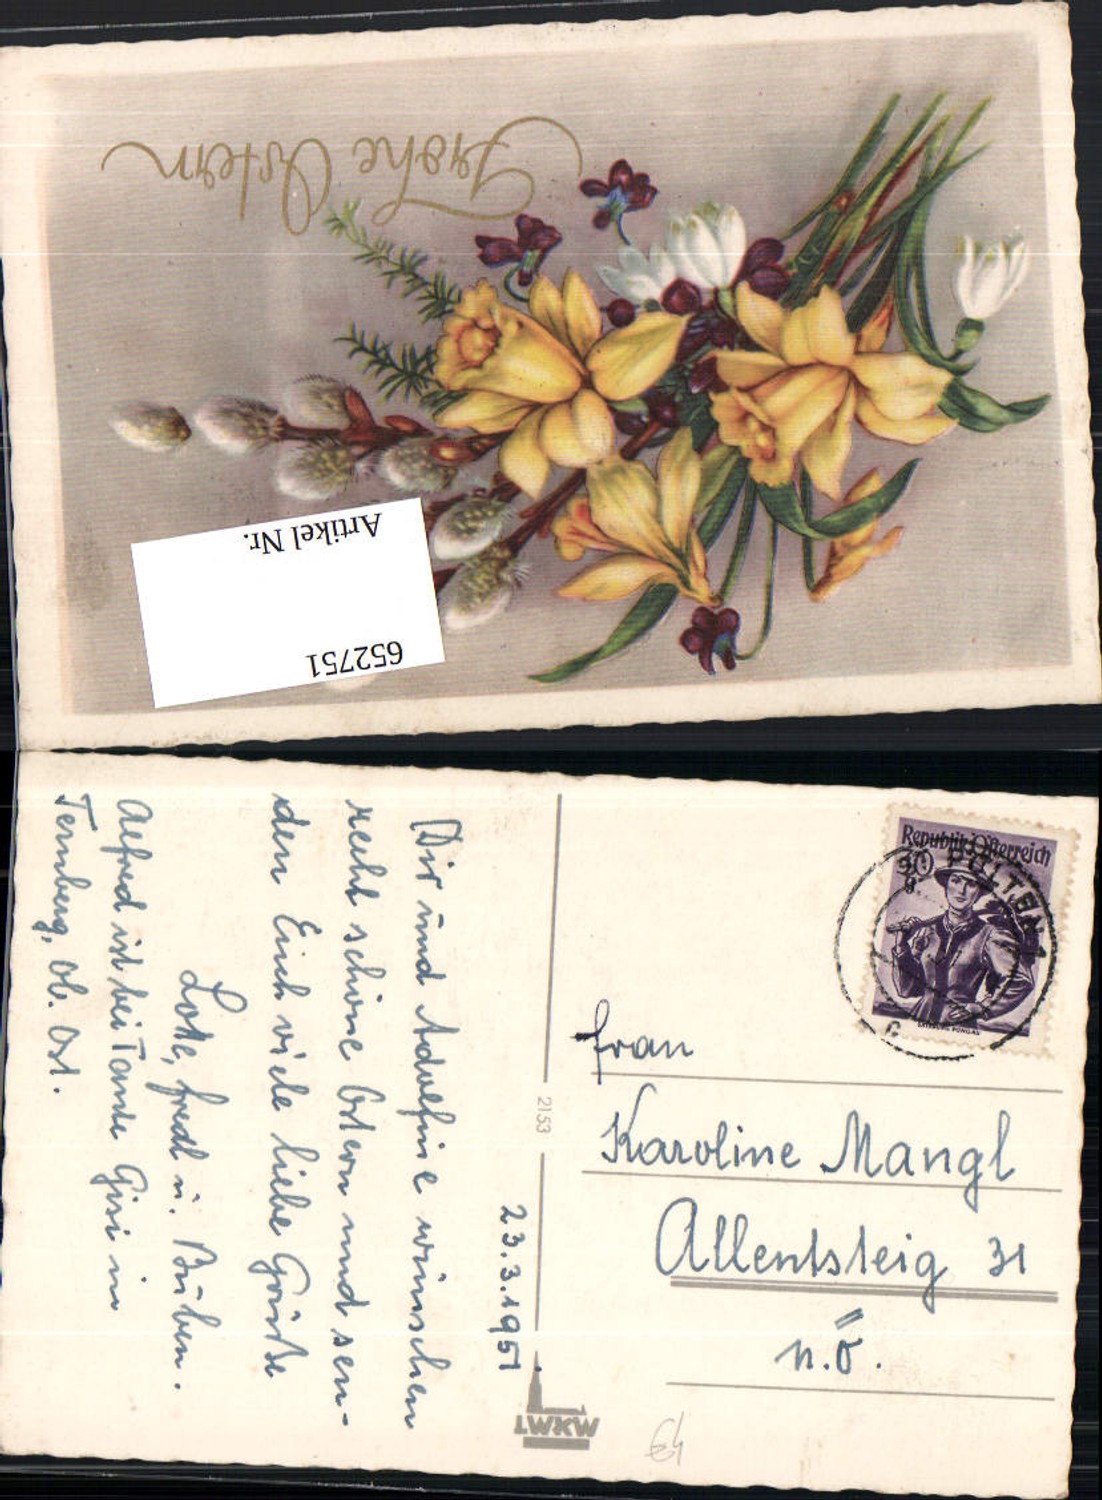 Frohe Ostern
Artikel Nr.
652751
23.3.1951
Dir und Adolfine wünschen
recht schöne Ostern und sen-
den Euch viele liebe Grüße
Lotte, Fredl u. Buben.
Alfred ist bei Tante Gisi in
Ternberg, ob. Öst.
2153
LWKW
Republik Österreich
30 g
PÖLTEN 1
SALZBURG, PONGAU
Frau
Karoline Mangl
Allentsteig 31
n.ö.